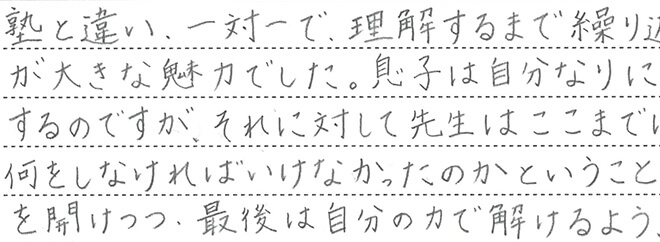 塾と違い、一対一で、理解するまで繰り返
が大きな魅力でした。息子は自分なりに
するのですが、それに対して先生はここまでに
何をしなければいけなかったのかということ
を開けつつ、最後は自分の力で解けるよう、